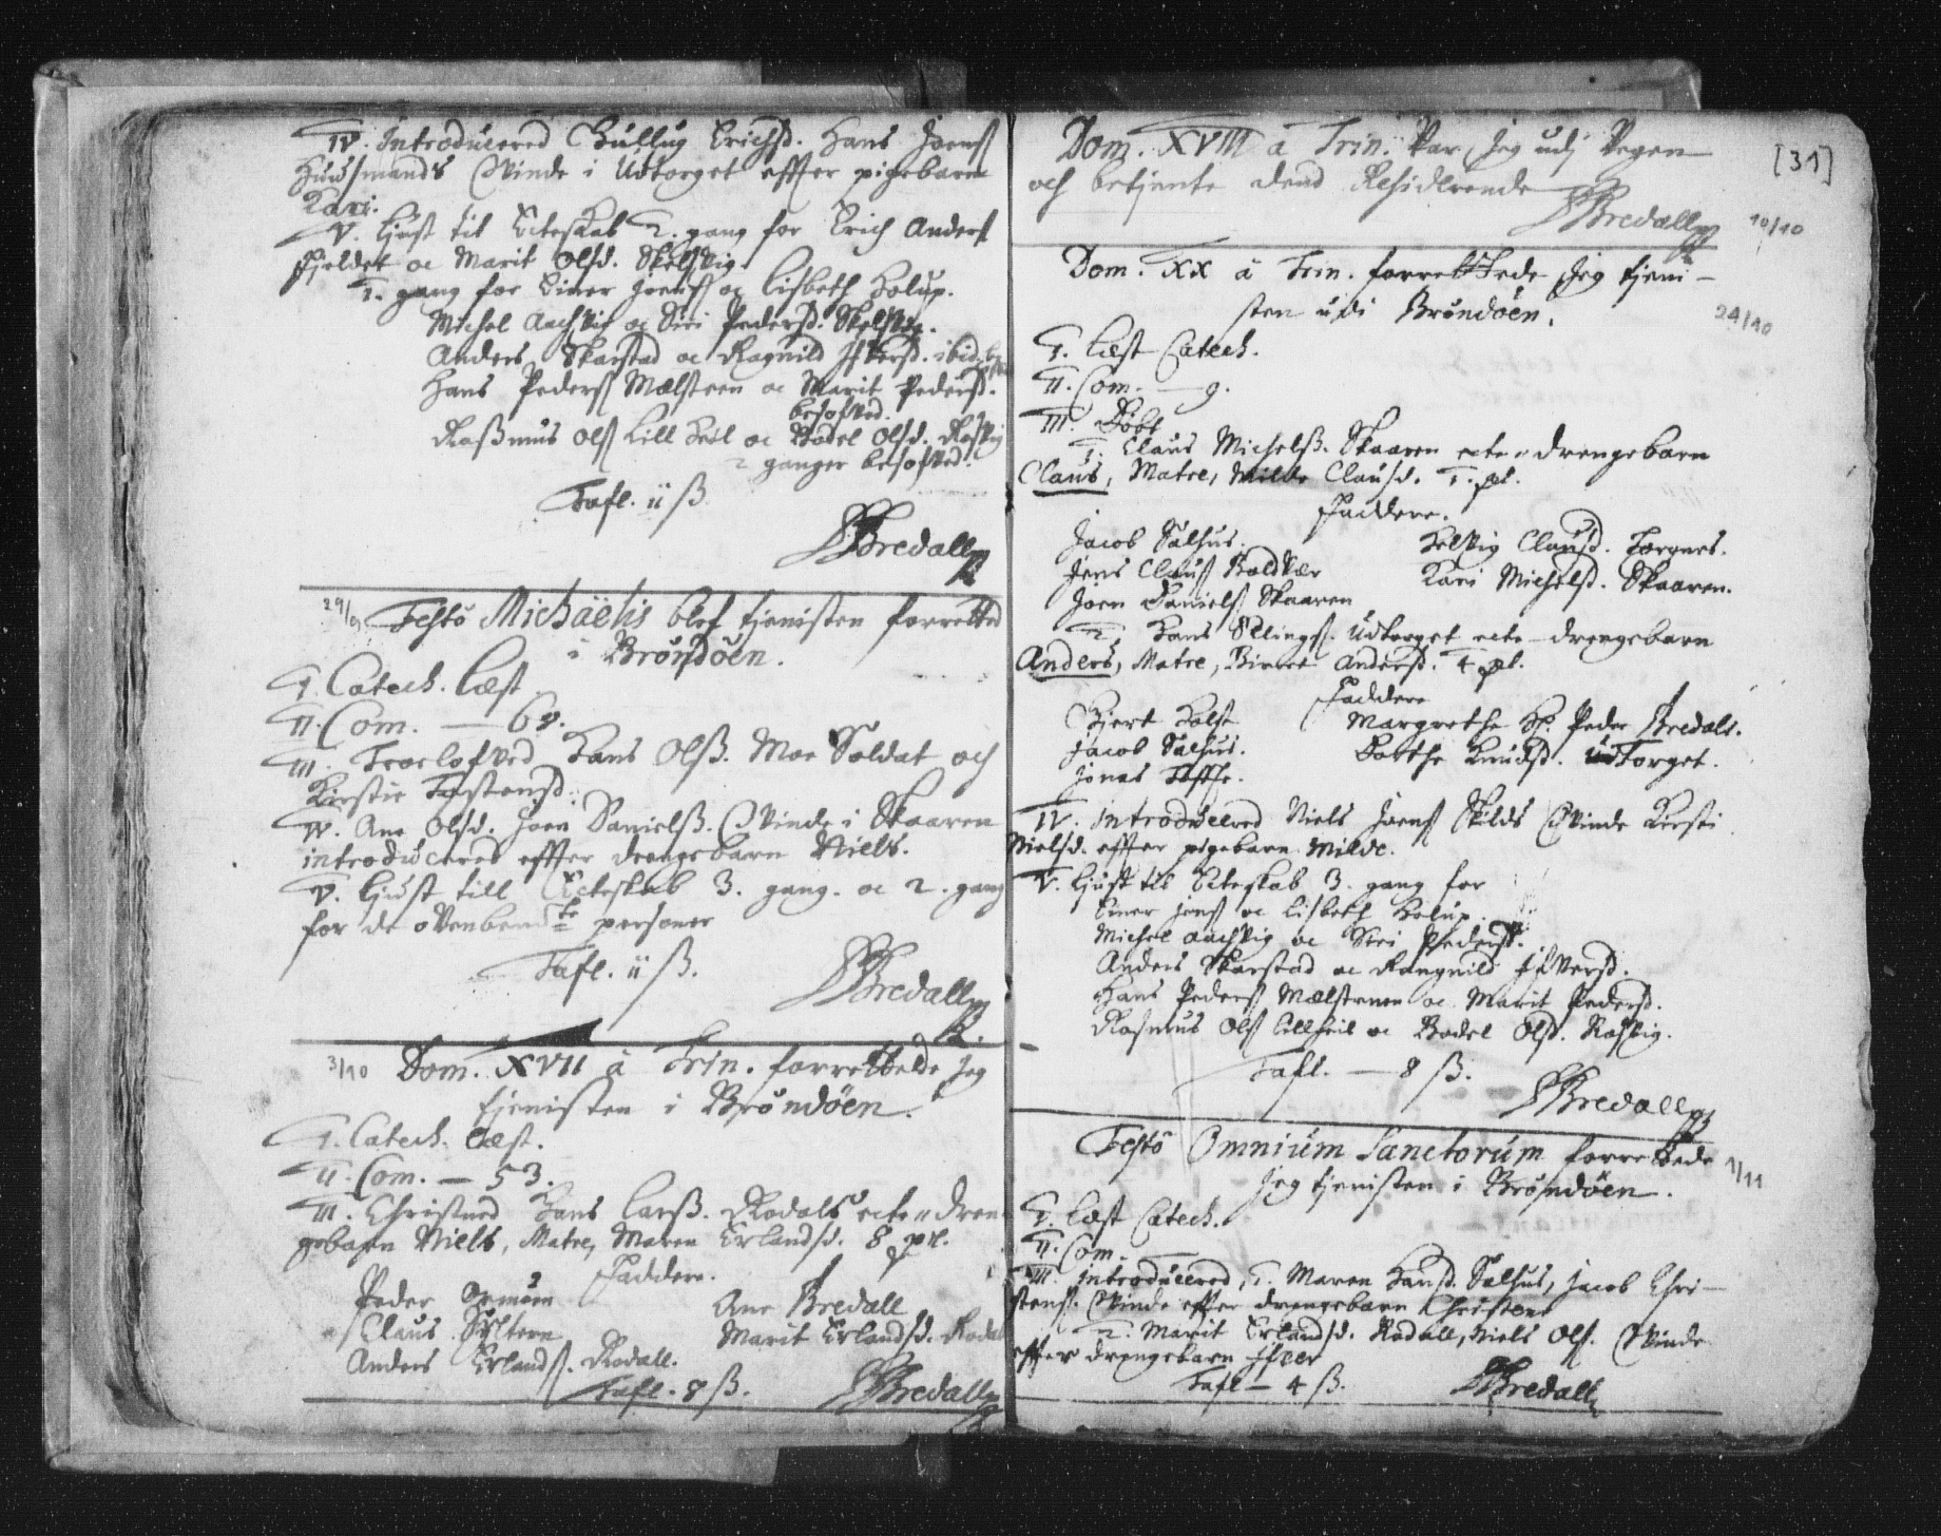 IV. Introducered Gullug Erichsd. Hans Joens
Huusmands Qvinde i Udtorget effter pigebarn
Kari.
V. Liust til Ecteskab 2. gang for Erich Anders
Fieldet oc Marit Olsd. Skelsvig.
1. gang for Einer Joens oc Lisbeth Holup.
Michel Aachvig oc Siri Pedersd. Skelsvig.
Anders Skarstad oc Ragnild Ifversd. ibid.
Hans Peders Mælsteen oc Marit Pedersd.
besofved.
Rasmus Ols Lill Heil oc Bodel Olsd. Rosvig
2 ganger besofved.
Tafl. ii ß.
Bredall
29/9 Festo Michäelis blef tienisten forretted
i Bröndöen.
I. Catech. Læst
II. Com. — 60.
III. Troelofved Hans Olsß. Moe Soldat och
Kirstie Tostensd.
IV. Ane Olsd. Joen Danielsß. Qvinde i Skaaren
introduceres effter drengebarn Niels.
V. Liust till Ecteskab 3. gang. oc 2. gang
for de ovenbemte personer
Tafl. ii ß.
Bredall
3/10 Dom. XVII à Trin. forrettede Jeg
tienisten i Bröndöen.
I. Catech. Læst.
II. Com. — 53.
III. Christned Hans Larsß. Rodals ecte dren
gebarn Niels, Matre, Maren Erlandsd. 8 pl.
Faddere.
Peder
Ane Bredall
Claus Syltern
Marit Erlandsd. Rodal
Anders Erlands. Rodall.
Tafl. 8 ß.
Bredall
[31]
Dom. XVIII à Trin. Var Jeg udj Vegen
och betiente dend Residerende
Bredall
10/10
Dom. XX à Trin. forrettede Jeg tieni-
sten udi Bröndöen.
24/10
I. Læst Catech.
II. Com. — 9.
III. Döbt
1. Claus Michelsß. Skaaren ecte drengebarn
Claus, Matre, Milde Clausd. 1. pl.
Faddere.
Jacob Salhus.
Helvig Clausd. Torgnes.
Jens Claus Boldvær
Kari Michelsd. Skaaren.
Joen Daniels Skaaren
2. Hans Ellings. Udtorget ecte drengebarn
Anders, Matre, Birrre Andersd. 4 pl.
Faddere
Giert Holst
Margrethe Hr. Peder Bredals.
Jacob Salhus.
Dorthe Knudsd. Udtorget.
Jonas
IV. Introducered Niels Joens Skilds Qvinde Kirsti
Nielsd. effter pigebarn Milde.
V. Liust til Ecteskab 3. gang for
Einer Jens oc Lisbeth Holup.
Michel Aachvig oc Siri Pedersd.
Anders Skarstad oc Rangnild Ifversd.
Hans Peders Mælsteneen oc Marit Pedersd.
Rasmus Ols Lillheil oc Bodel Olsd. Rosvig.
Tafl. — 8 ß.
Bredall
Festo Omnium Sanctorum forrettede
Jeg tienisten i Bröndöen.
1/11
I. Læst Catech.
II. Com. —
III. Introducered, 1. Maren Hansd. Salhus, Jacob Chri-
stens. Qvinde effter drengebarn Christen
2. Marit Erlandsd. Rodall, Niels Ols. Qvinde
effter drengebarn Ifver
Tafl — 4 ß.
Bredall